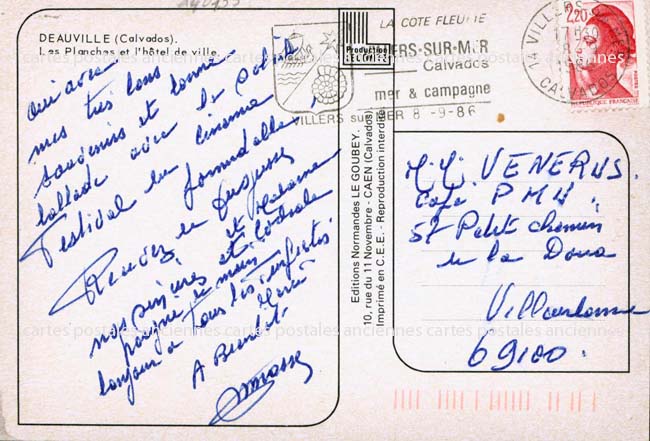 DEAUVILLE (Calvados).
Les Planches et l'hôtel de ville.
Oui avec
mes très bons
souvenirs et bonne
ballade avec le soleil
Festival du cinéma
formidable !
et Madame
nos sincères et cordiale
poignée de main
bonjour à tous les
A Bientôt.
Editions Normandes LE GOUBEY.
10, rue du 11 Novembre - CAEN (Calvados)
Imprimé en C.E.E. - Reproduction interdite
Production
LA COTE FLEURIE
VILLERS-SUR-MER
Calvados
mer & campagne
VILLERS sur MER 8-9-86
14 VILLERS
CALVADOS
2,20
REPUBLIQUE FRANÇAISE
M. M. VENERUS
Café P M U
57 Petit chemin
de la Doua
Villeurbanne
69100.
cartes postales anciennes cartes postales anciennes cartes postales anciennes